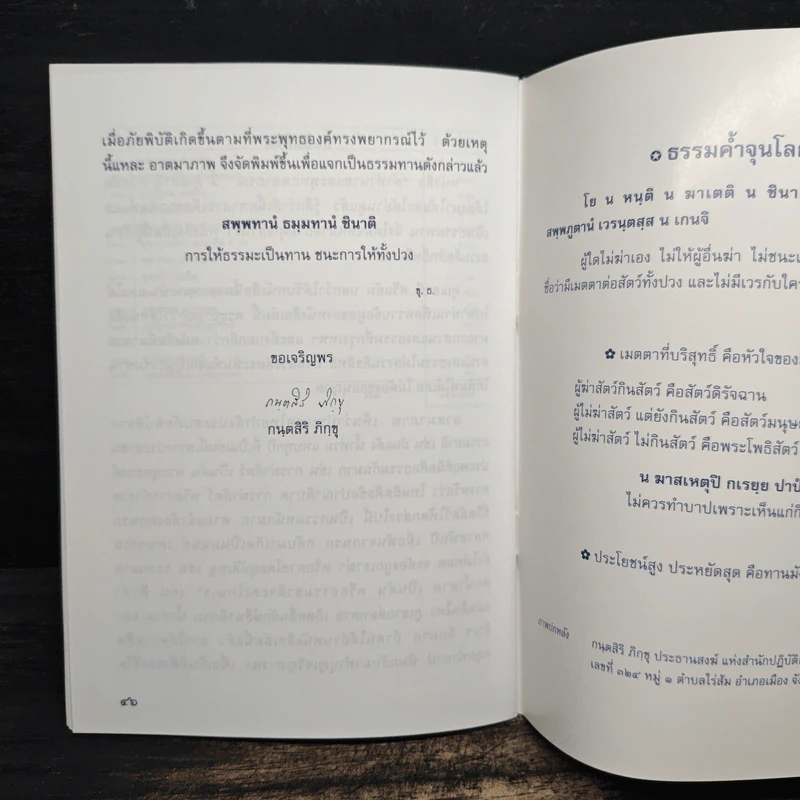 เมื่อภัยพิบัติเกิดขึ้นตามที่พระพุทธองค์ทรงพยากรณ์ไว้ ด้วยเหตุ
นี้แหละ อาตมาภาพ จึงจัดพิมพ์ขึ้นเพื่อแจกเป็นธรรมทานดังกล่าวแล้ว
สพฺพทานํ ธมฺมทานํ ชินาติ
การให้ธรรมะเป็นทาน ชนะการให้ทั้งปวง
ขุ. ธ.
ขอเจริญพร
กนฺตสิริ ภิกฺขุ
กนฺตสิริ ภิกฺขุ
๔๖
✪ ธรรมค้ำจุนโลก
โย น หนฺติ น ฆาเตติ น ชินา
สพฺพภูตานํ เวรนฺตสฺส น เกนจิ
ผู้ใดไม่ฆ่าเอง ไม่ให้ผู้อื่นฆ่า ไม่ชนะเ
ชื่อว่ามีเมตตาต่อสัตว์ทั้งปวง และไม่มีเวรกับใคร
✿ เมตตาที่บริสุทธิ์ คือหัวใจของ
ผู้ฆ่าสัตว์กินสัตว์ คือสัตว์ดิรัจฉาน
ผู้ไม่ฆ่าสัตว์ แต่ยังกินสัตว์ คือสัตว์มนุษย์
ผู้ไม่ฆ่าสัตว์ ไม่กินสัตว์ คือพระโพธิสัตว์
น ฆาสเหตุปิ กเรยฺย ปาปํ
ไม่ควรทำบาปเพราะเห็นแก่กิ
✿ ประโยชน์สูง ประหยัดสุด คือทานมัง
ภาพปกหลัง
กนฺตสิริ ภิกฺขุ ประธานสงฆ์ แห่งสำนักปฏิบัติ
เลขที่ ๓๒๔ หมู่ ๑ ตำบลไร่ส้ม อำเภอเมือง จัง